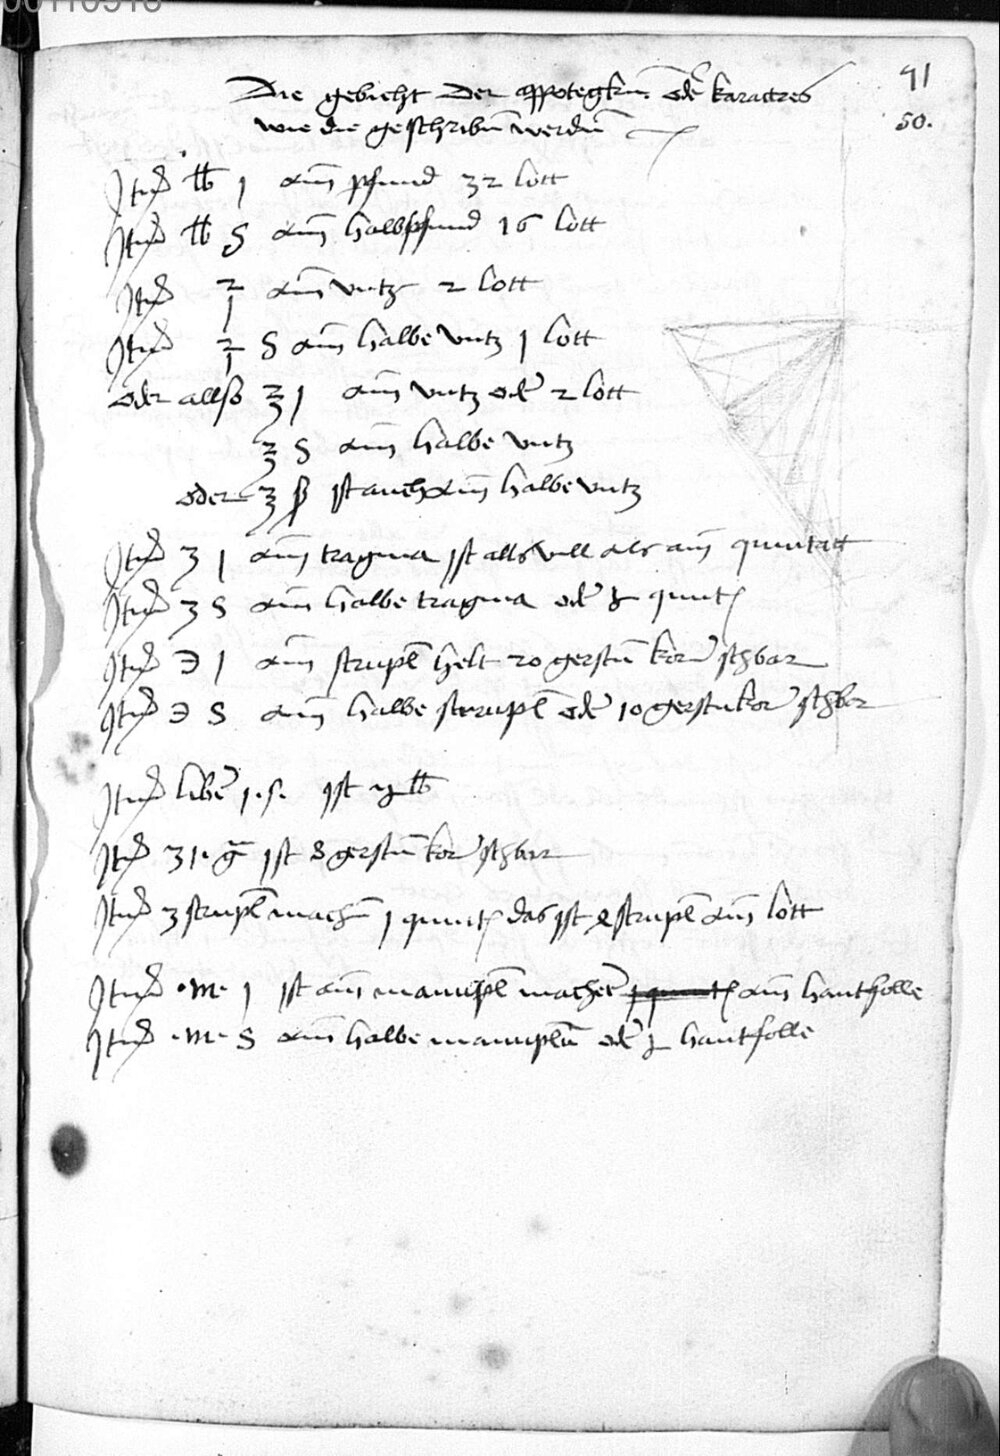 00110918
91
Die gebicht der appotegkin̄ oder karactres
50.
wie die geschribn̄ werdn̄
Jtem ℔ j ain̄ pfund 32 lott
Jtem ℔ s ain̄ halbpfund 16 lott
Jtem ain̄ vntz 2 lott
Jtem s ain̄ halbe vntz j lott
oder allso ℥ j ain̄ vntz oder 2 lott
℥ s ain̄ halbe vntz
oder ℥ ß ist auch ain̄ halbe vntz
Jtem ʒ j ain̄ tragma ist alls vill als ain̄ quintat
Jtem ʒ s ain̄ halbe tragma oder quint
Jtem ℈ j ain̄ scrupl helt 20 gerstn̄ korn schbar
Jtem ℈ s ain̄ halbe scrupl oder 10 gerstn̄kor schber
Jtem liber j. s. ist ℔
Jtem ist 8 gerstn̄ kor schbar
Jtem 3 scrupl machn̄ j quint das ist scrupl ain̄ lott
Jtem .m. j ist ain̄ manipl machet ain̄ hantfolle
Jtem .m. s ain̄ halbe manipln̄ oder hantfolle